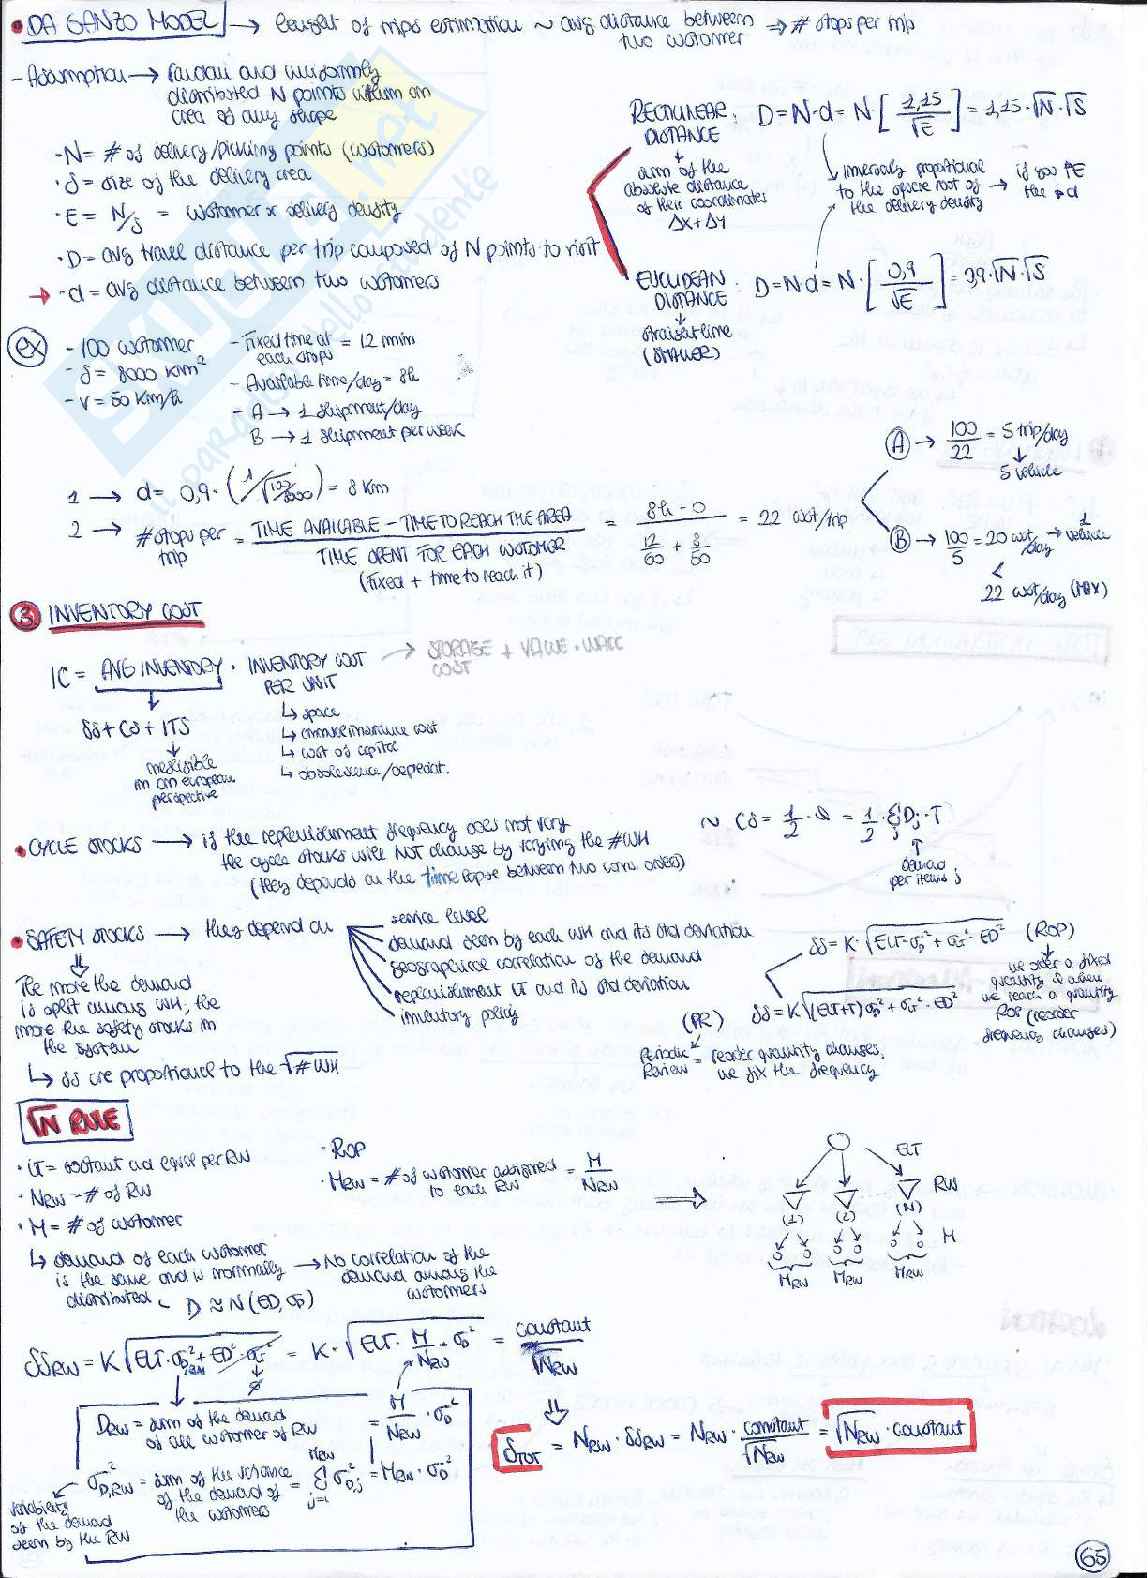 • DAGANZO MODEL → lenght of trips estimation ~ avg distance between two customer ⇒ # stops per trip
- Assumption → random and uniformly
distributed N points within an
area of any shape
- N = # of delivery/picking points (customers)
• S = size of the delivery area
• E = N/S = customer or delivery density
• D = avg travel distance per trip composed of N points to visit
→ - d = avg distance between two customers
RECTILINEAR DISTANCE : D = N·d = N [1,15/√E] = 1,15·√N·√S
sum of the
absolute distance
of their coordinates
ΔX + ΔY
inversely propotional
to the square root of
the delivery density → if you ↑E the ↓d
EUCLIDEAN DISTANCE : D = N d = N · [0,9/√E] = 0,9·√N·√S
straight line
(SMALLER)
ex
- 100 customer
- S = 8000 km²
- v = 50 km/h
- Fixed time at each drops = 12 min
- Available time/day = 8h
- A → 1 shipment/day
B → 1 shipment per week
1 → d = 0,9 · (1/√(100/8000)) = 8 km
2 → # stops per trip = TIME AVAILABLE - TIME TO REACH THE AREA / TIME SPENT FOR EACH CUSTOMER = 8h - 0 / (12/60 + 8/50) = 22 cust/trip
(fixed + time to reach it)
A → 100/22 = 5 trip/day
↓
5 vehicle
B → 100/5 = 20 cust/day → 1 vehicle
<
22 cust/day (MAX)
3 INVENTORY COST
IC = AVG INVENTORY · INVENTORY COST PER UNIT → STORAGE COST + VALUE · WACC
SS + CS + ITS
negligible
in an european
perspective
↳ space
↳ cost of capital
↳ obsolescence/
• CYCLE STOCKS → if the replenishment frequency does not vary
the cycle stocks will NOT change by varying the #WH
(they depends on the time lapse between two cons. orders)
~ CS = 1/2 · Q = 1/2 · Σj Dj · T
demand
per item j
• SAFETY STOCKS → they depend on
service level
demand seen by each WH and its std deviation
geographical correlation of the demand
replenishment LT and its std deviation
inventory policy
The more the demand
is split among WH, the
more the safety stocks in
the system
↳ SS are proportional to the √#WH
SS = K · √(ELT·σD² + σLT² · ED²) (ROP)
we order a fixed
quantity when
we reach a quantity
ROP (reorder
frequency changes)
SS = K√((ELT+T)σD² + σLT² · ED²)
(PR)
Periodic Review = reorder quantity changes,
we fix the frequency
√N RULE
• LT = costant and equal per RW
• NRW = # of RW
• M = # of customer
↳ demand of each customer
is the same and is normally
distributed
D ≈ N(ED, σD)
→ No correlation of the
demand among the
customers
• ROP
• MRW = # of customer assigned to each RW = M/NRW
⇒
ELT
RW
(1) (2) (N)
M
MRW MRW MRW
SSRW = K√(ELT·σ²D,RW + ED²·σLT²) = K·√(ELT · M/NRW · σD²) = constant/√NRW
∅
DRW = sum of the demand
of all customer of RW
= M/NRW · σD²
σ²D,RW = sum of the variance
of the demand of
the customers
= Σ(j=1, MRW) σ²D,j = MRW · σD²
variability
of the demand
seen by the RW
STOT = NRW · SSRW = NRW · constant/√NRW = √NRW · constant
65
SKUOLA.net
il paradiso dello studente